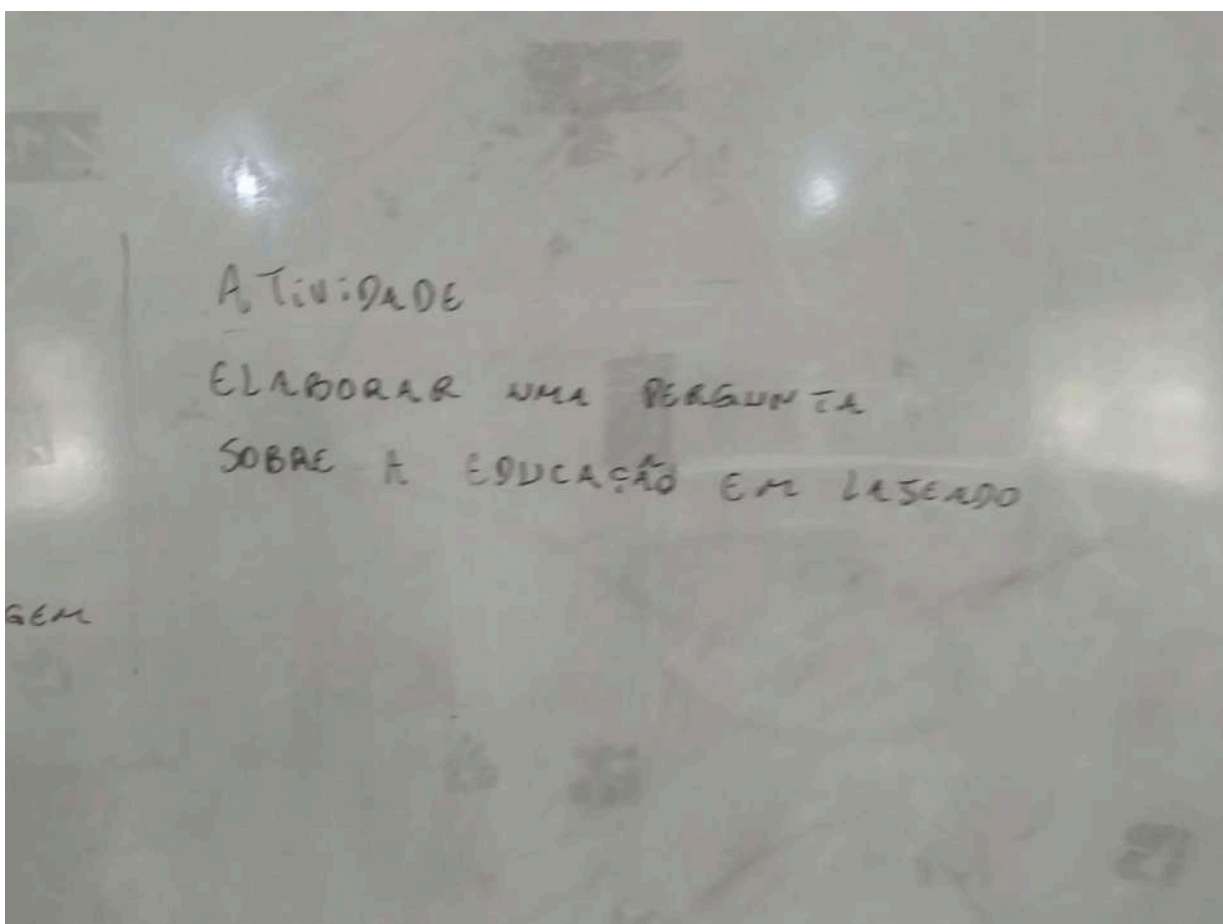 ATIVIDADE
ELABORAR UMA PERGUNTA
SOBRE A EDUCAÇÃO EM LAJEADO
GEM